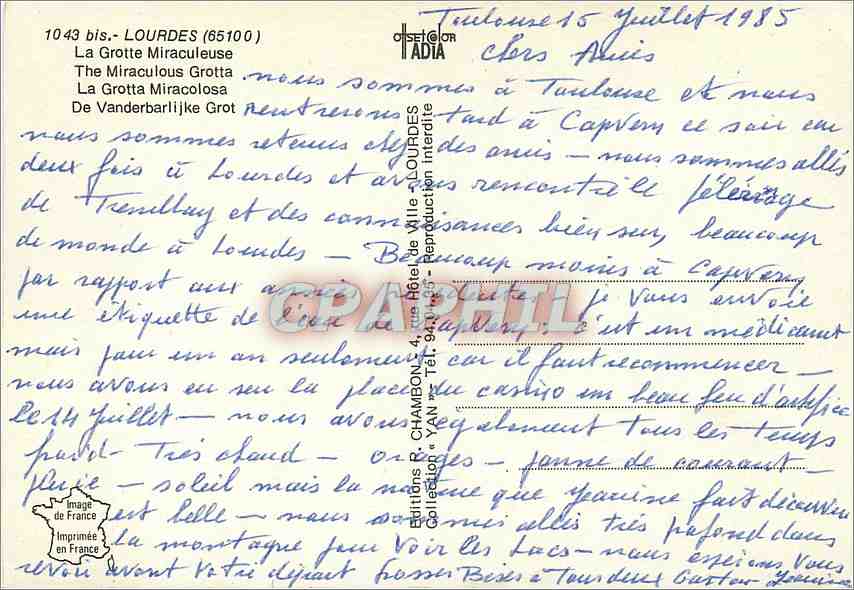 1043 bis.- LOURDES (65100)
La Grotte Miraculeuse
The Miraculous Grotta
La Grotta Miracolosa
De Vanderbarlijke Grot
OFFSET COLOR
IADIA
Toulouse 15 Juillet 1985
Chers Amis
nous sommes à Toulouse et nous
rentrerons tard à Capvern ce soir car
nous sommes retenus chez des amis - nous sommes allés
deux fois à Lourdes et avons rencontré le pélérinage
de Tremblay et des connaissances bien sur, beaucoup
de monde à Lourdes - Beaucoup moins à Capvern
par rapport aux années précédentes - je vous envoie
une étiquette de l'eau de Capvern. c'est un médicament
mais pour un an seulement car il faut recommencer -
nous avons eu sur la place du casino un beau feu d'artifice
le 14 Juillet - nous avons également tous les temps
froid - très chaud - orages - panne de courant -
pluie - soleil mais la nature que Jeanine fait découvrir
est belle - nous sommes allés très profond dans
la montagne pour voir les Lacs - nous espérons vous
revoir avant votre départ Grosses Bises à Tous deux Gaston Jeanine
Editions R. CHAMBON - 4, rue Hôtel de Ville - LOURDES
Collection « YAN » - Tél. 94. - Reproduction Interdite
CPAPHIL
Image
de France
Imprimée
en France